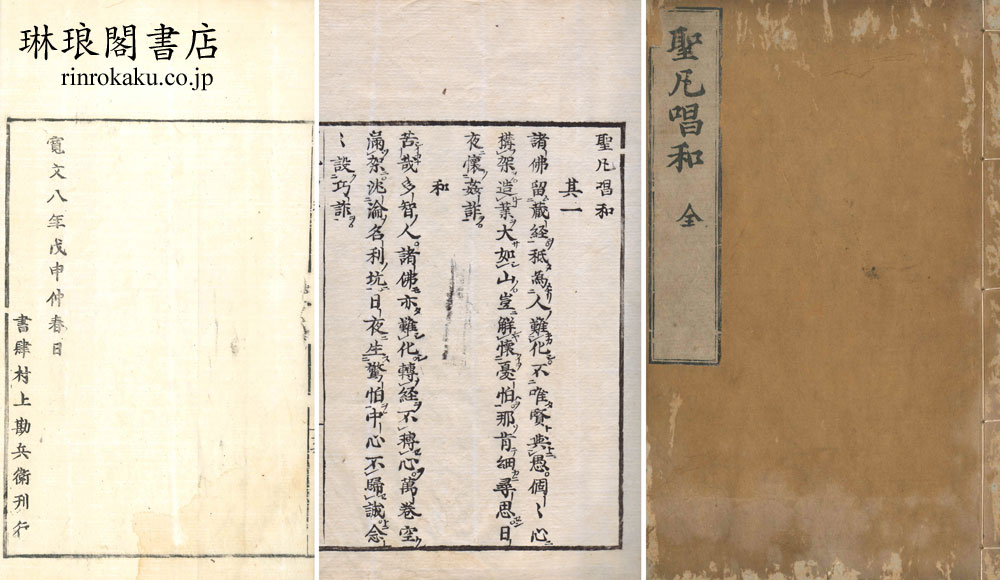 琳琅閣書店
rinrokaku.co.jp
聖凡唱和 全
聖凡唱和
其一
諸佛留藏經秖為人難化不唯賢與愚個〻心
構架造業大如山豈解懷憂怕那肯細尋思日
夜懷姦詐
和
苦哉多智人諸佛亦難化轉經不轉心萬卷空
滿架沈淪名利坑日夜生驚怕中心不歸誠念
〻設巧詐
寛文八年戊申仲春日
書肆村上勘兵衛刊行